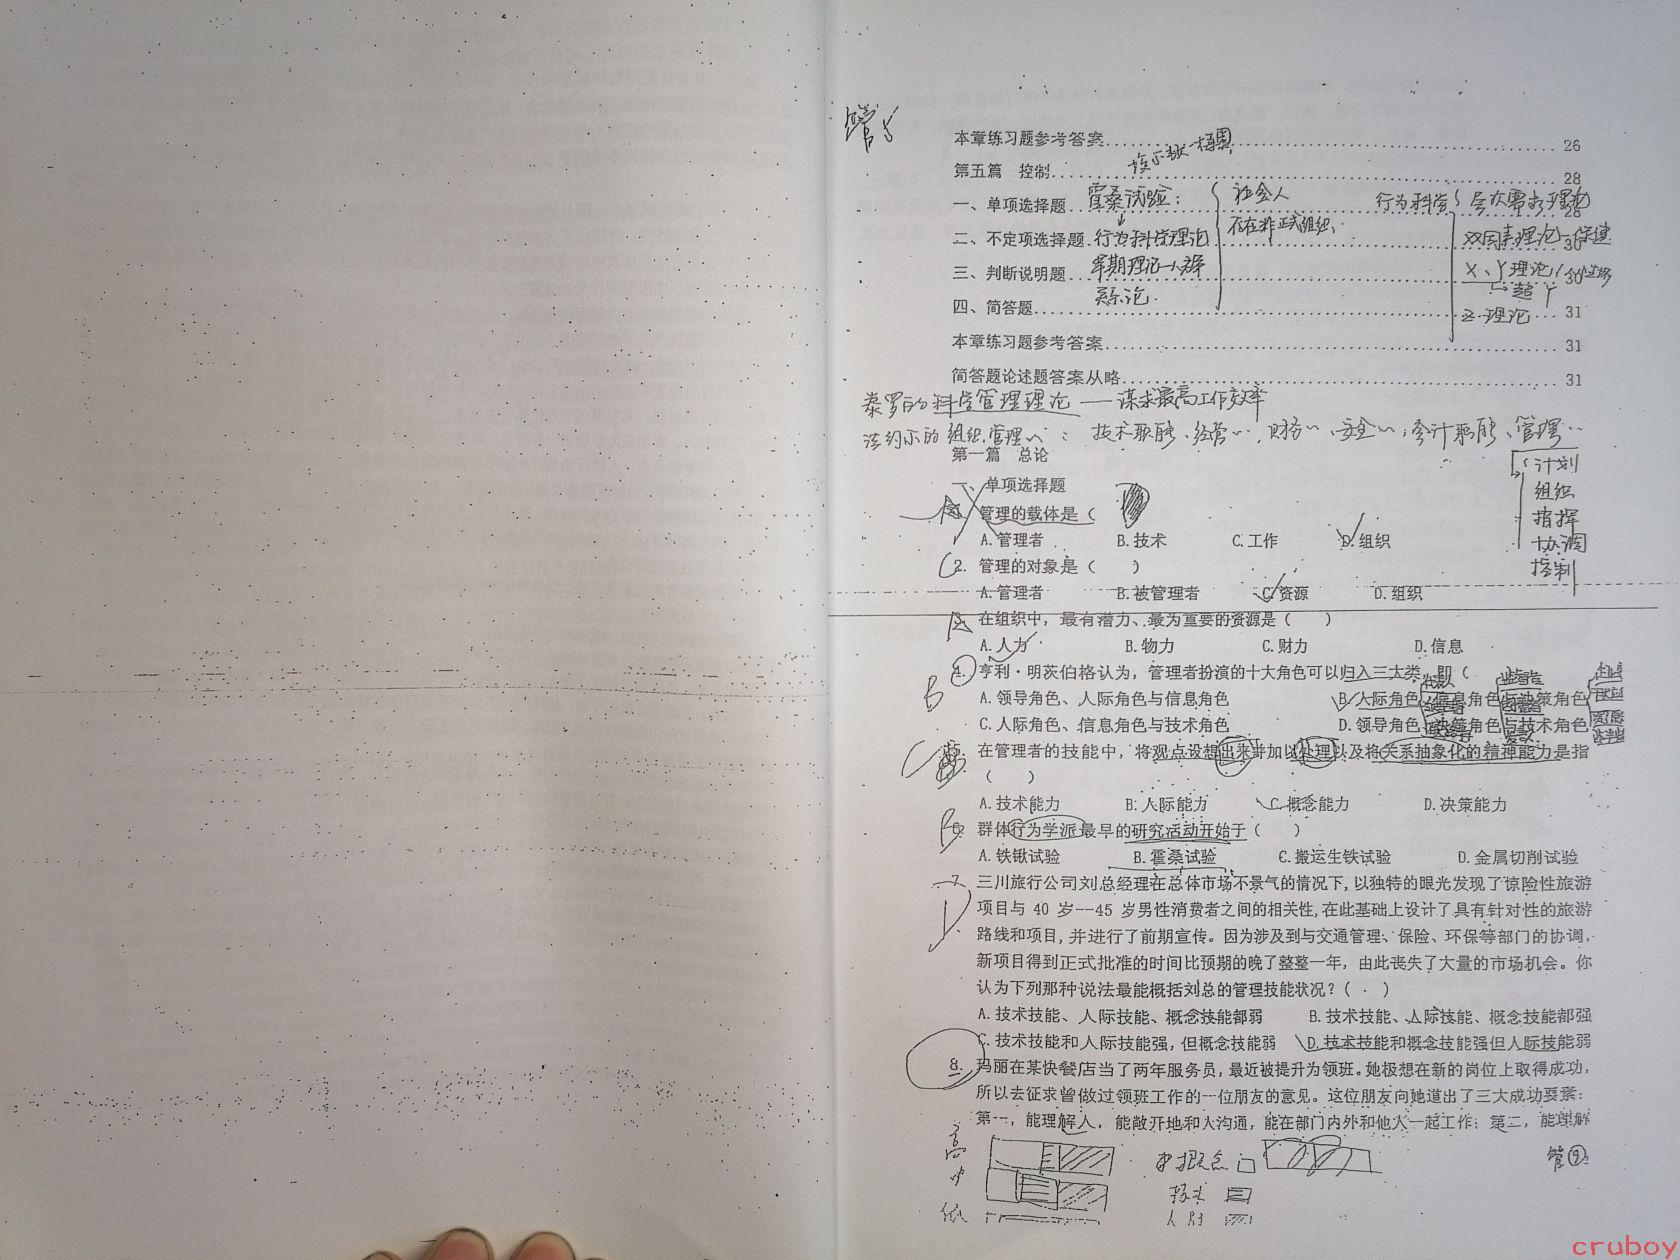 本章练习题参考答案 26
第五篇 控制 28
霍桑试验: 社会人 行为科学 层次需求理论
一、单项选择题 28
不存在非正式组织
二、不定项选择题 30
行为科学理论 双因素理论-保健
三、判断说明题 30
早期理论-人群 X、Y理论
关系论 超Y
四、简答题 31
Z理论
本章练习题参考答案 31
简答题论述题答案从略 31
泰罗的科学管理理论——谋求最高工作效率
法约尔的组织管理〃: 技术职能、经营〃、财务〃、安全〃、会计职能、管理〃
第一篇 总论
计划
组织
指挥
协调
控制
一、单项选择题
管理的载体是(
A.管理者 B.技术 C.工作 D.组织
2. 管理的对象是( )
A.管理者 B.被管理者 C.资源 D.组织
3. 在组织中,最有潜力、最为重要的资源是( )
A.人力 B.物力 C.财力 D.信息
4. 亨利·明茨伯格认为,管理者扮演的十大角色可以归入三大类,即(
B
A.领导角色、人际角色与信息角色 B.人际角色、信息角色与决策角色
C.人际角色、信息角色与技术角色 D.领导角色、决策角色与技术角色
C 5. 在管理者的技能中,将观点设想出来并加以处理以及将关系抽象化的精神能力是指
( )
A.技术能力 B.人际能力 C.概念能力 D.决策能力
B 6. 群体行为学派最早的研究活动开始于( )
A.铁锹试验 B.霍桑试验 C.搬运生铁试验 D.金属切削试验
7. 三川旅行公司刘总经理在总体市场不景气的情况下,以独特的眼光发现了惊险性旅游
D
项目与 40 岁--45 岁男性消费者之间的相关性,在此基础上设计了具有针对性的旅游
路线和项目,并进行了前期宣传。因为涉及到与交通管理、保险、环保等部门的协调,
新项目得到正式批准的时间比预期的晚了整整一年,由此丧失了大量的市场机会。你
认为下列那种说法最能概括刘总的管理技能状况?( )
A.技术技能、人际技能、概念技能都弱 B.技术技能、人际技能、概念技能都强
C.技术技能和人际技能强,但概念技能弱 D.技术技能和概念技能强但人际技能弱
8. 玛丽在某快餐店当了两年服务员,最近被提升为领班。她极想在新的岗位上取得成功,
所以去征求曾做过领班工作的一位朋友的意见。这位朋友向她道出了三大成功要素:
第一,能理解人,能敞开地和人沟通,能在部门内外和他人一起工作;第二,能理解
高 概念 管⑨
中 技术
低 人际
cruboy